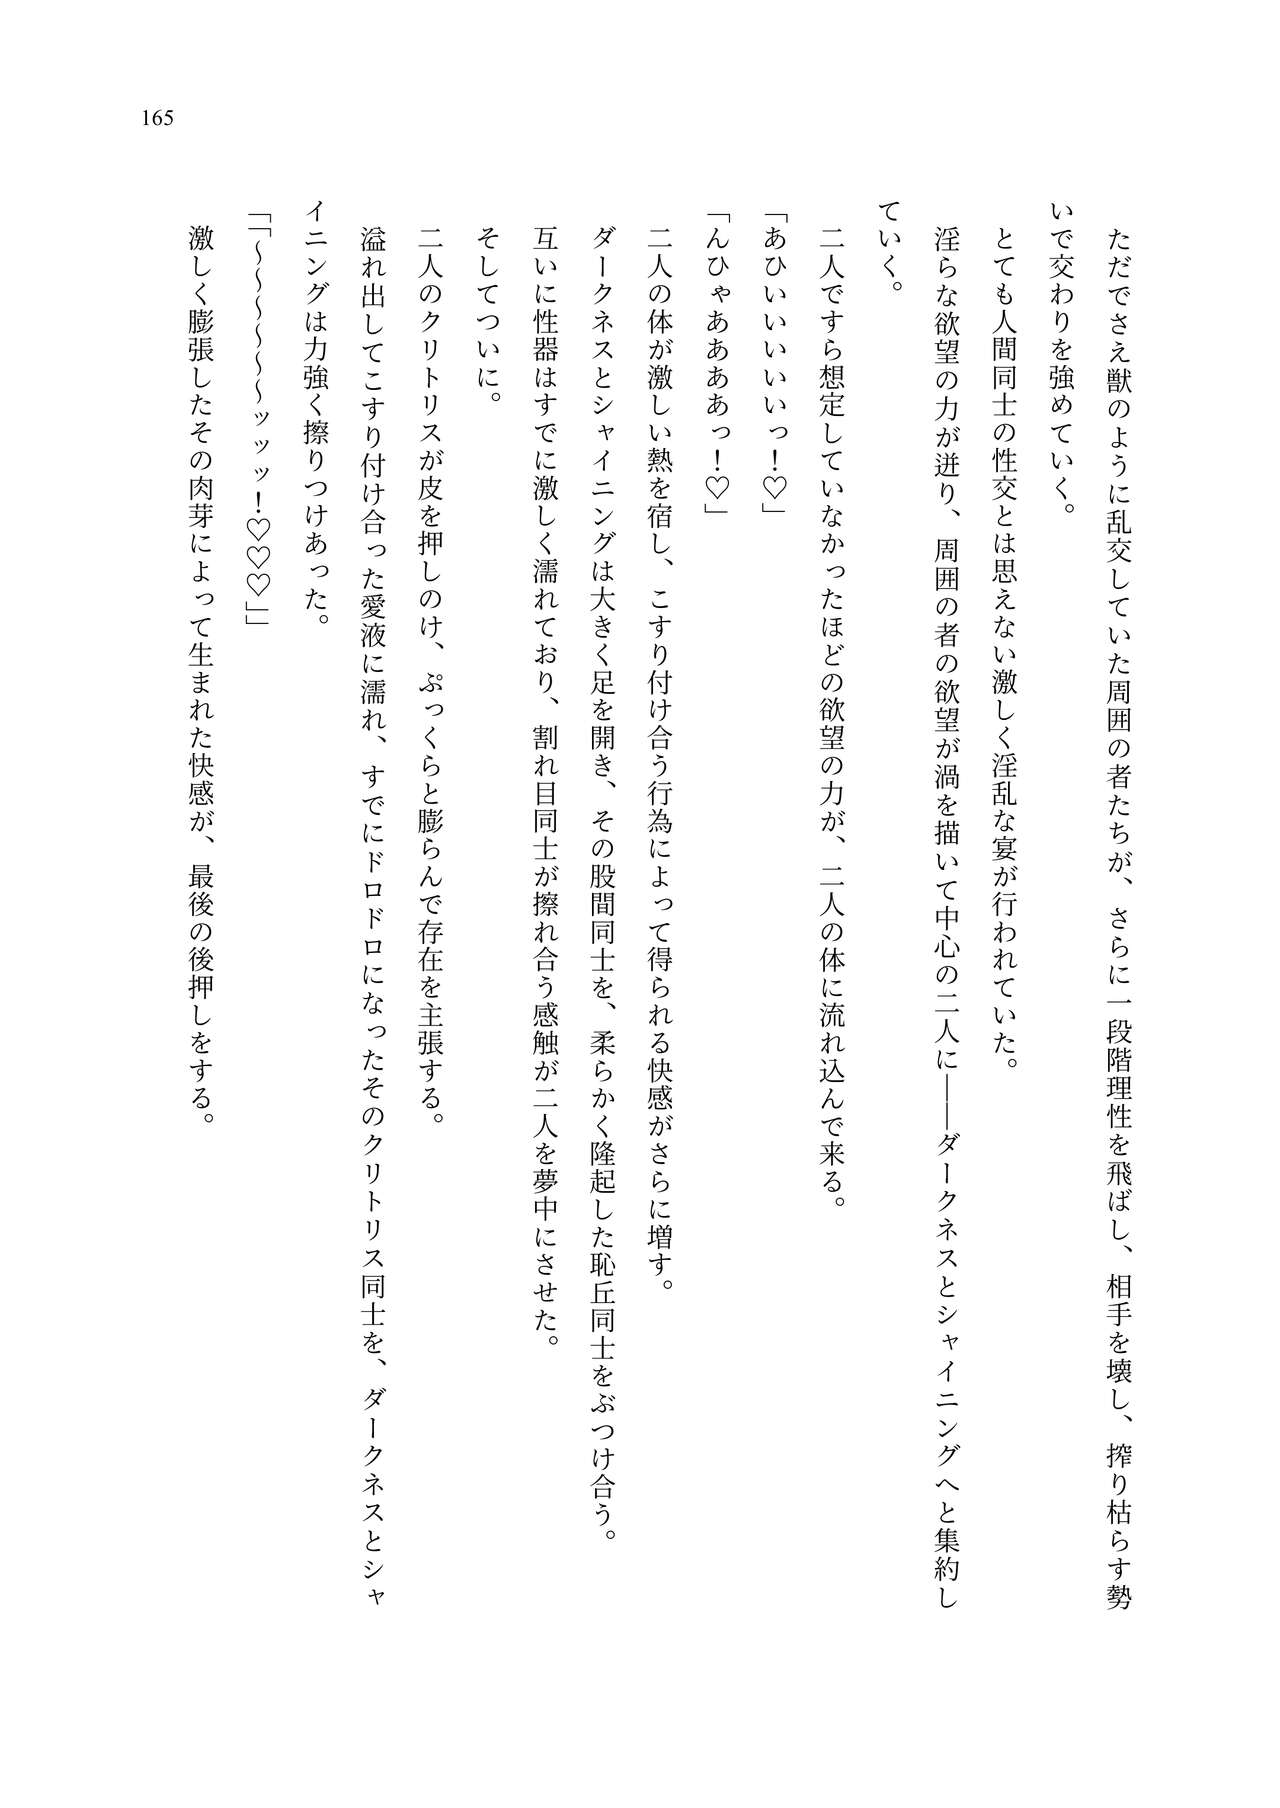 165
ただでさえ獣のように乱交していた周囲の者たちが、さらに一段階理性を飛ばし、相手を壊し、搾り枯らす勢
いで交わりを強めていく。
とても人間同士の性交とは思えない激しく淫乱な宴が行われていた。
淫らな欲望の力が迸り、周囲の者の欲望が渦を描いて中心の二人に――ダークネスとシャイニングへと集約し
ていく。
二人ですら想定していなかったほどの欲望の力が、二人の体に流れ込んで来る。
「あひいいいいいっ！♡」
「んひゃああああっ！♡」
二人の体が激しい熱を宿し、こすり付け合う行為によって得られる快感がさらに増す。
ダークネスとシャイニングは大きく足を開き、その股間同士を、柔らかく隆起した恥丘同士をぶつけ合う。
互いに性器はすでに激しく濡れており、割れ目同士が擦れ合う感触が二人を夢中にさせた。
そしてついに。
二人のクリトリスが皮を押しのけ、ぷっくらと膨らんで存在を主張する。
溢れ出してこすり付け合った愛液に濡れ、すでにドロドロになったそのクリトリス同士を、ダークネスとシャ
イニングは力強く擦りつけあった。
「「～～～～～～ッッッ！♡♡♡」」
激しく膨張したその肉芽によって生まれた快感が、最後の後押しをする。